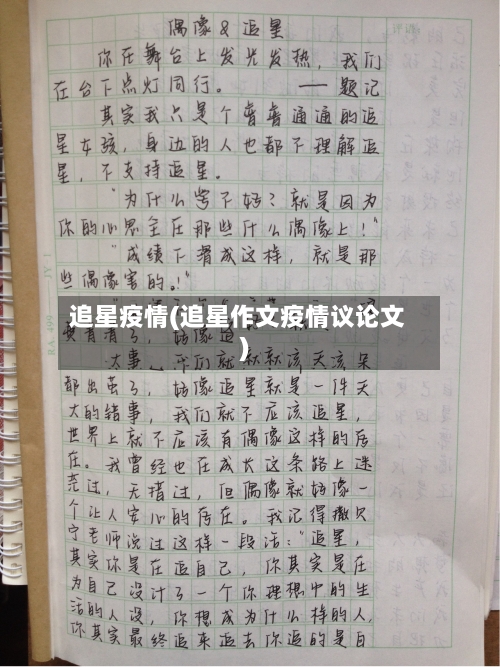 偶像 & 追星
你在舞台上发光发热，我们
在台下点灯同行。 ——题记
其实我只是个普普通通的追
星女孩，身边的人也都不理解追
星，不支持追星。
"为什么考不好？就是因为
你的心思全在那些什么偶像上！"
"成绩下滑成这样，就是那
些偶像害的。！"
追星疫情(追星作文疫情议论文
)
都出茧了，好像追星就是一件天
大的错事，我们就不应该追星，
世界上就不应该有偶像这样的存
在。我曾经也在成长这条路上迷
茫过，无措过，但偶像就好像一
个让人安心的存在。我记得撒贝
宁老师说过这样一段话："追星，
其实你是在追自己，你其实是在
为自己设计了一个你理想中的生
活的人设，你想成为什么样的人，
你其实最终追来追去你追的是自